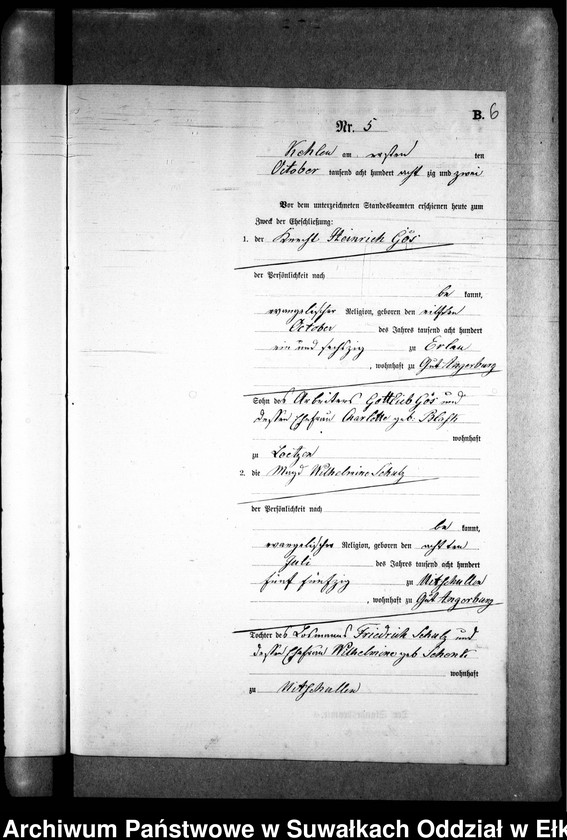 B. 6
Nr. 5
Kehlen am ersten ten
October tausend acht hundert acht zig und zwei
Vor dem unterzeichneten Standesbeamten erschienen heute zum
Zweck der Eheschließung:
1. der Knecht Heinrich Gös
der Persönlichkeit nach
be kannt,
evangelischer Religion, geboren den elften
October des Jahres tausend acht hundert
ein und sechszig zu Erlau
, wohnhaft zu Gut Angerburg
Sohn des Arbeiters Gottlieb Gös und
dessen Ehefrau Charlotte geb.
wohnhaft
zu Loetzen
2. die Magd Wilhelmine Schulz
der Persönlichkeit nach
be kannt,
evangelischer Religion, geboren den achtten
Juli des Jahres tausend acht hundert
fünf fünfzig zu
, wohnhaft zu Gut Angerburg
Tochter des Losmanns Friedrich Schulz und
dessen Ehefrau Wilhelmine geb
wohnhaft
zu
Archiwum Państwowe w Suwałkach Oddział w Ełk